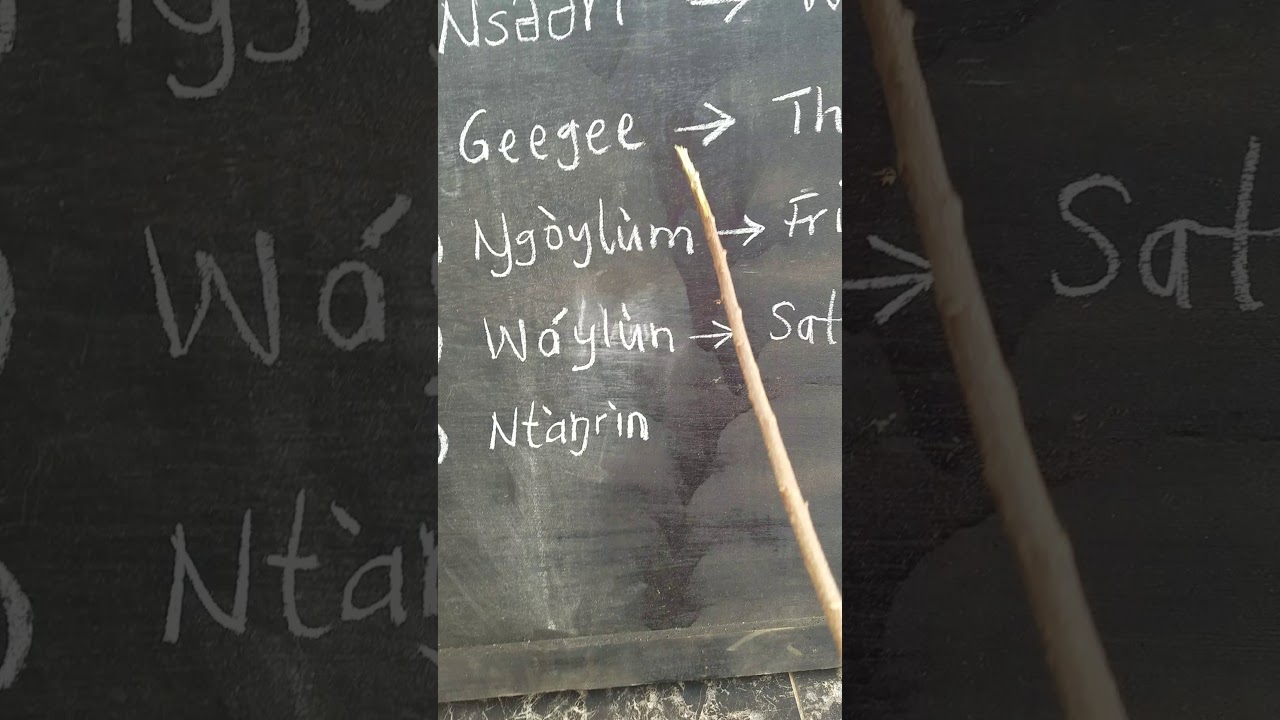 Nsəərì →
Geegee → Th
Ŋgòylùm → Fri
Wáylùn → Sat
Ntàŋrìn